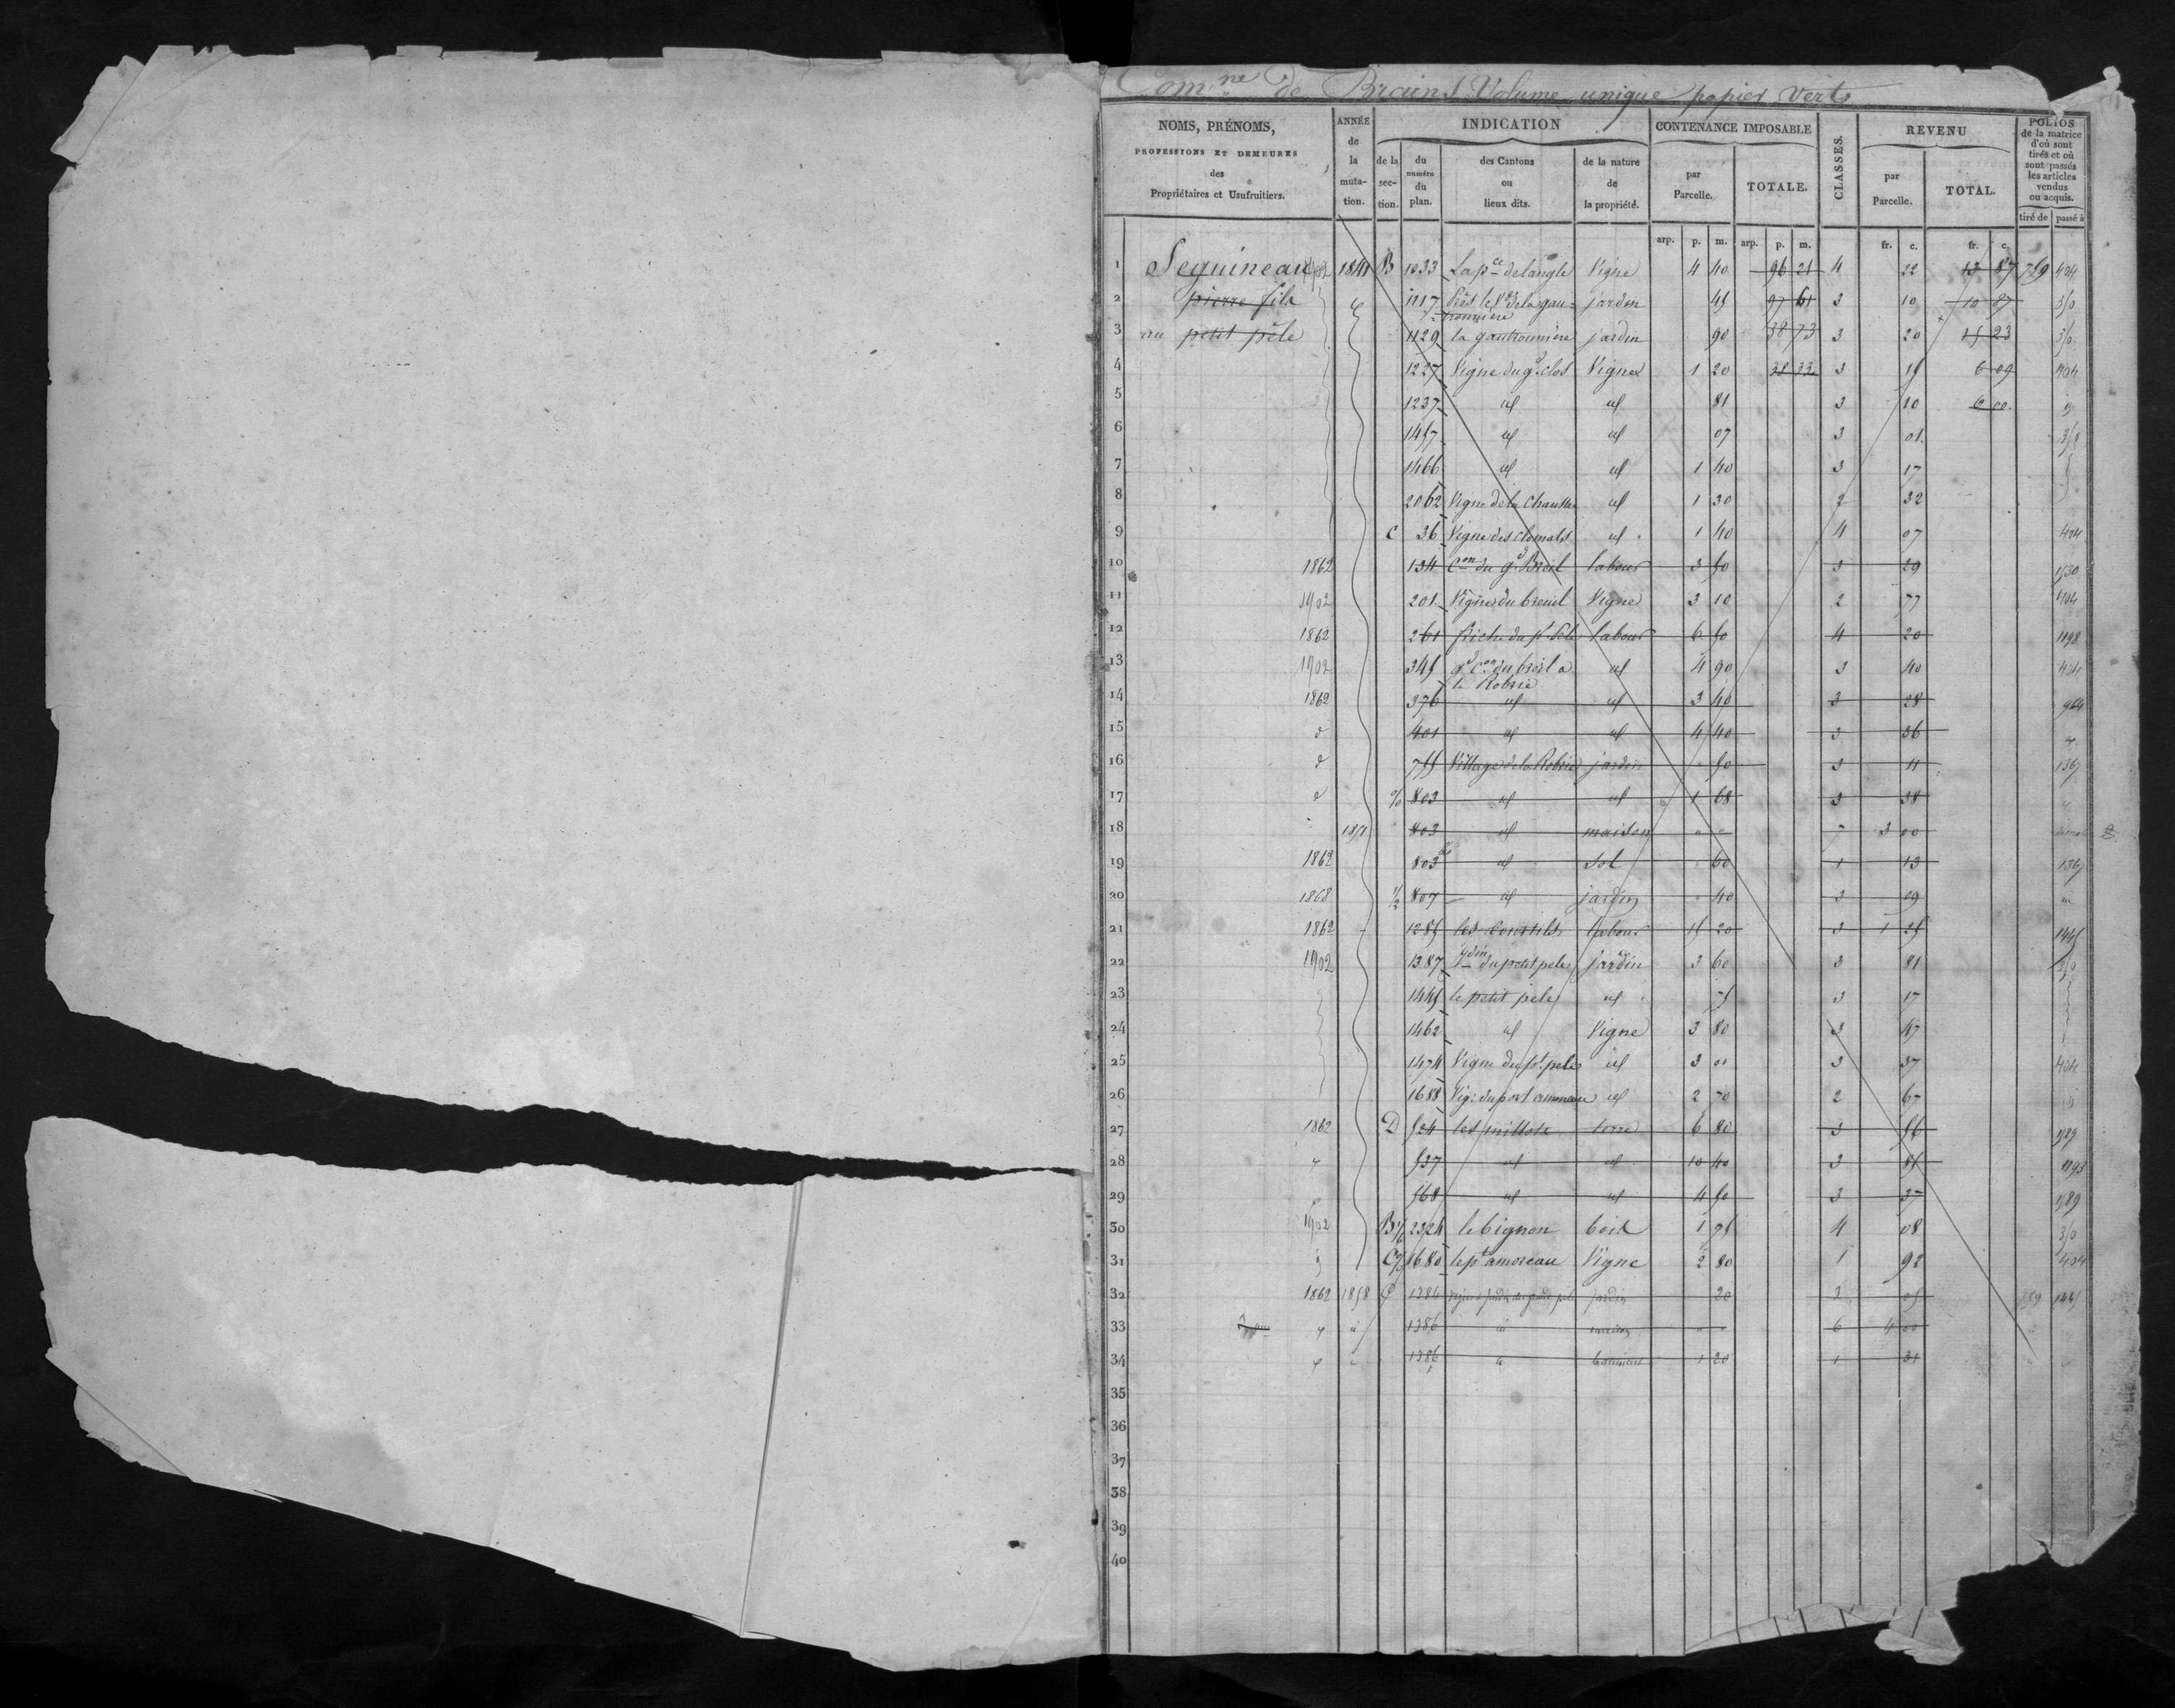 Com.ne de Brains Volume unique papier Verts
NOMS, PRÉNOMS,
PROFESSIONS ET DEMEURES
des
Propriétaires et Usufruitiers.
ANNÉE de la muta- tion.
INDICATION
de la sec- tion.
du numéro du plan.
des Cantons ou lieux dits.
de la nature de la propriété.
CONTENANCE IMPOSABLE
par Parcelle.
TOTALE.
CLASSES.
REVENU
par Parcelle.
TOTAL.
FOLIOS de la matrice d'où sont tirés et où sont passés les articles vendus ou acquis.
tiré de passé à
arp. p. m. arp. p. m. fr. c. fr. c.
1 Seguineau 1902 1841 B 1033 La pce de langle Vigne 4 40 96 21 4 22 13 87 759 404
2 pierre fils 1117 jardin 45 97 61 3 10 10 87 350
3 au petit pèle 1129 la gautronnière jardin 90 38 73 3 20 15 23 350
4 1227 Vigne du gd clos Vigne 1 20 38 33 3 15 6 09 404
5 1237 id id 81 3 10 6 00
6 1457 id id 07 3 01 350
7 1466 id id 1 40 3 17
8 2062 Vigne de la Chaussée id 1 30 2 32
9 C 36 Vigne des id 1 40 4 07 404
10 1862 134 Con du gd Breil labour 3 50 3 29 1530
11 1902 201 Vigne du breuil Vigne 3 10 2 77 404
12 1862 261 labour 6 50 4 20 1198
13 1902 345 gd Con du breil a la Robrie id 4 90 3 40 404
14 1862 376 id id 3 40 3 28 964
15 d 401 id id 4 40 3 36
16 d 755 Village de la Robrie jardin 50 3 11 1367
17 d 803 id id 1 68 3 38
18 1851 803 id maison 7 3 00
19 1862 803 bis id Sol 60 1 13 1367
20 1868 1/2 807 id jardin 40 3 09
21 1862 1285 les Courtils labour 15 20 3 1 25 1445
22 1902 1387 jdin du petit pele jardin 3 60 3 81 350
23 1445 le petit pele id 75 3 17
24 1462 id Vigne 3 80 3 47
25 1474 Vigne du pt pele id 3 00 3 37 404
26 1688 id 2 70 2 67
27 1862 D 524 terre 6 80 3 56 1589
28 537 id id 10 40 3 85 1193
29 568 id id 4 50 3 37 1589
30 1902 B 2324 le bignon bois 1 75 4 08 350
31 C 1680 le pt amoreau Vigne 2 80 1 92 404
32 1862 1858 C 1384 jardin 20 3 05 159 1445
33 1386 maison 6 4 00
34 1386 bâtiment 1 20 1 31
35
36
37
38
39
40